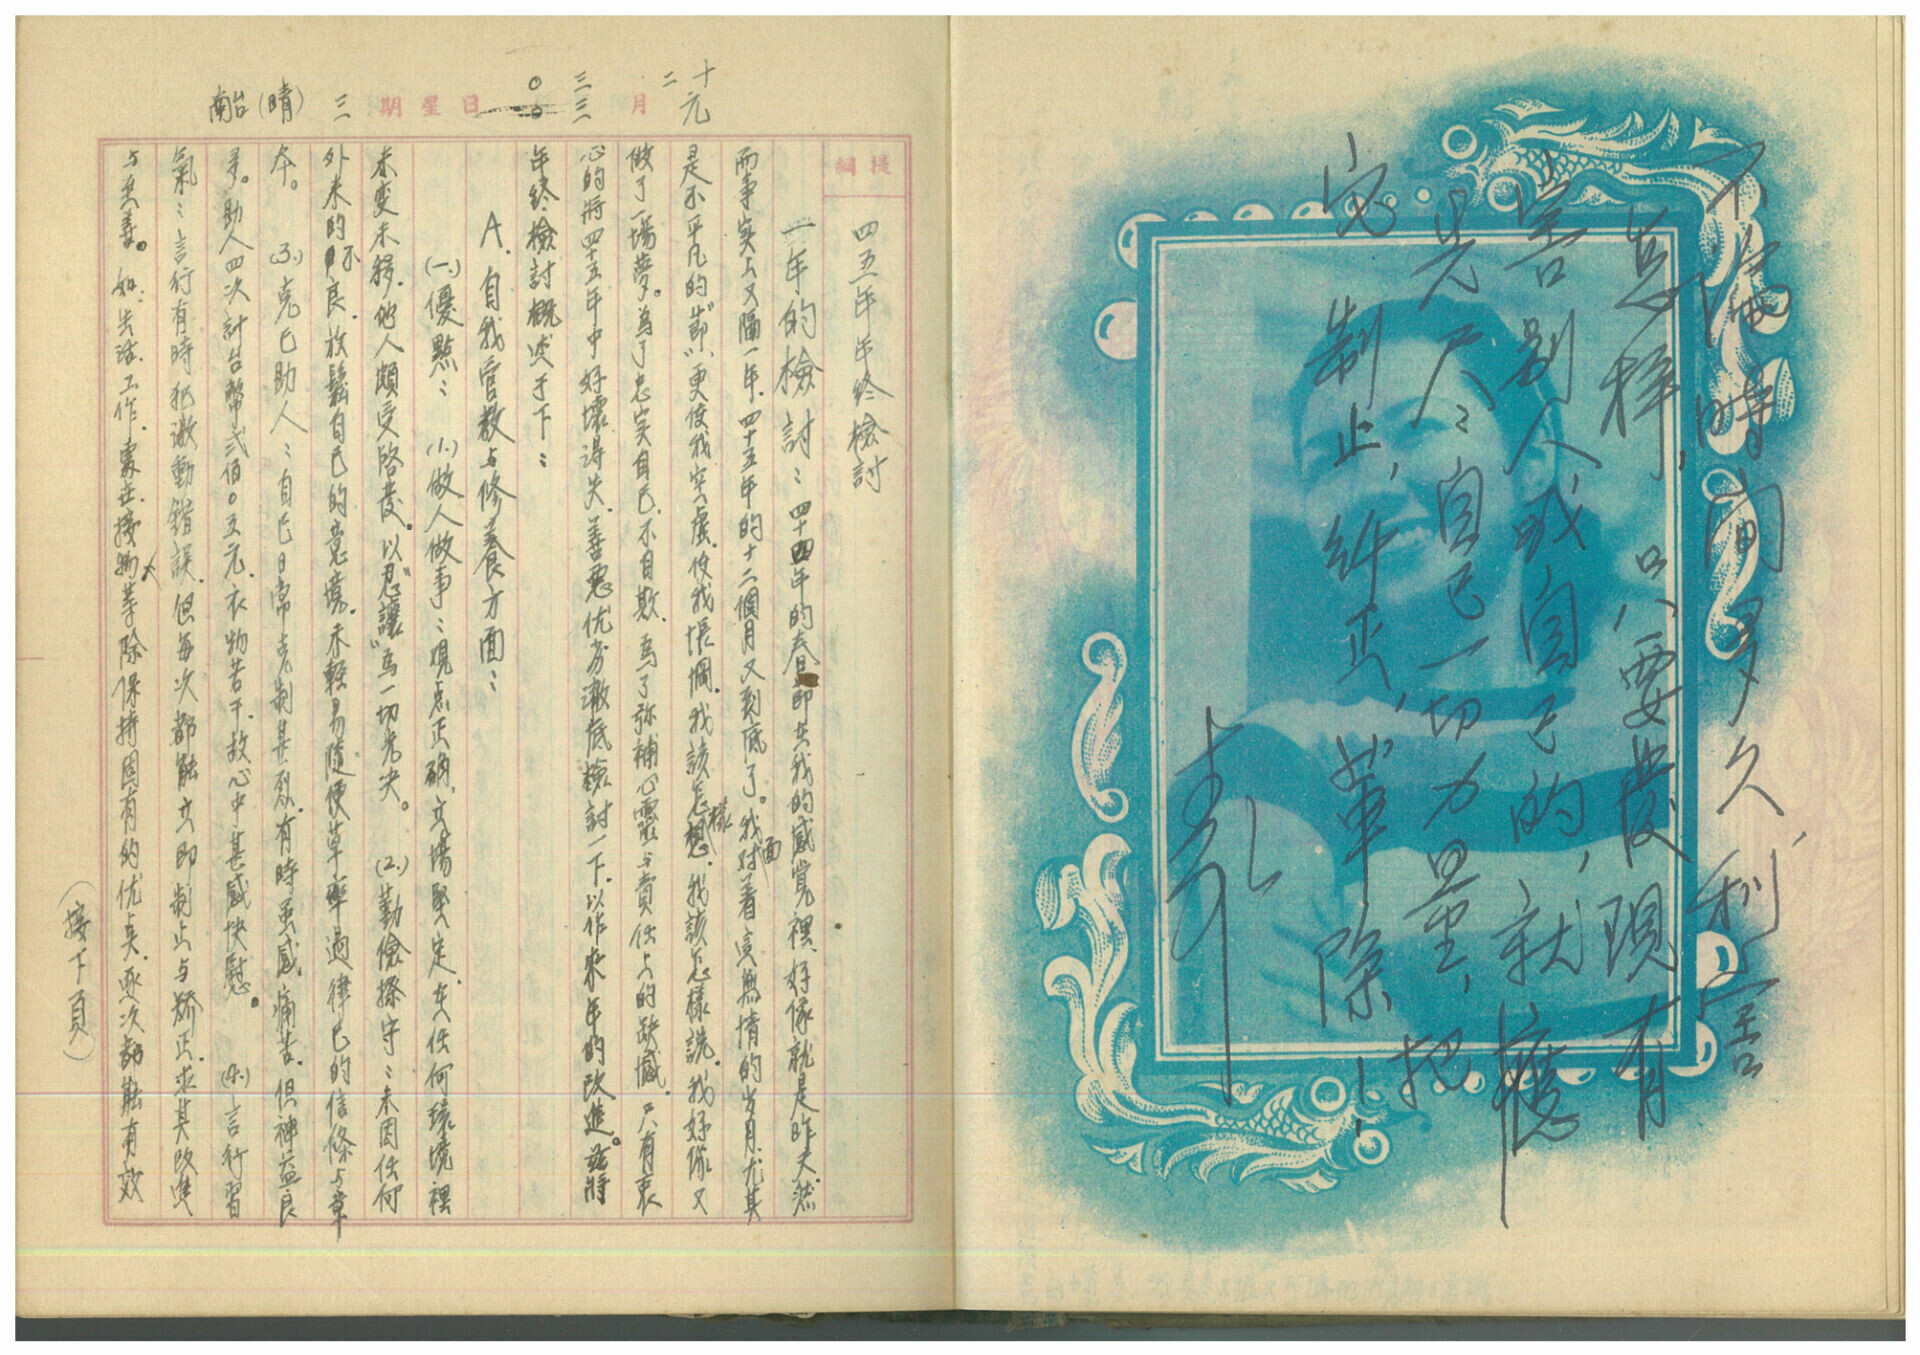 不論時間多久，利害
怎樣，只要發現有
害別人或自己的，就應
充尺；自己一切力量，把
它制止，糾正，革除！
十二 元月 三三 三三 日 星期 三 (晴) 南台
提綱
四五年年終檢討
一年的檢討：四十四年的春節在我的感覺裡，好像就是昨天。然
而事實上又隔一年，四十五年的十二個月又到底了。我面對着這無情的歲月，尤其
是不平凡的"節"，更使我空虛，使我悵惘。我該怎樣想，我該怎樣說。我好像又
做了一場夢。為了忠實自己，不自欺，為了弥補心靈与責任上的缺憾。只有衷
心的將四十五年中好壞得失、善惡优劣澈底檢討一下，以作來年的改進。茲將
年終檢討概述于下：
A. 自我管教与修養方面：
(一)優點：(1.)做人做事：观点正确，立場堅定，在任何環境裡
未变未移，他人頗受啓發。以"忍讓"為一切先决。(2.)勤儉操守：未因任何
外來的不良，放鬆自己的意境，未輕易隨便草率過律己的信條与章
本。(3.)克己助人：自己日常克制甚烈，有時虽感痛苦，但神益良
多。助人四次計台幣弍佰〇五元，衣物若干，故心中甚感快慰。(4.)言行習
氣：言行有時犯激動錯誤，但每次都能立即制止与矫正，求其改進
与至善。如：生活、工作、處世、接物等除保持固有的优点，逐次都能有效
(接下頁)